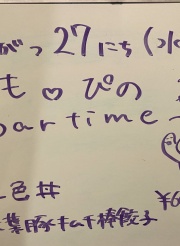 がつ27にち(水
も♡ぴの
bartime
色丼
葉豚キムチ棒餃子
¥6